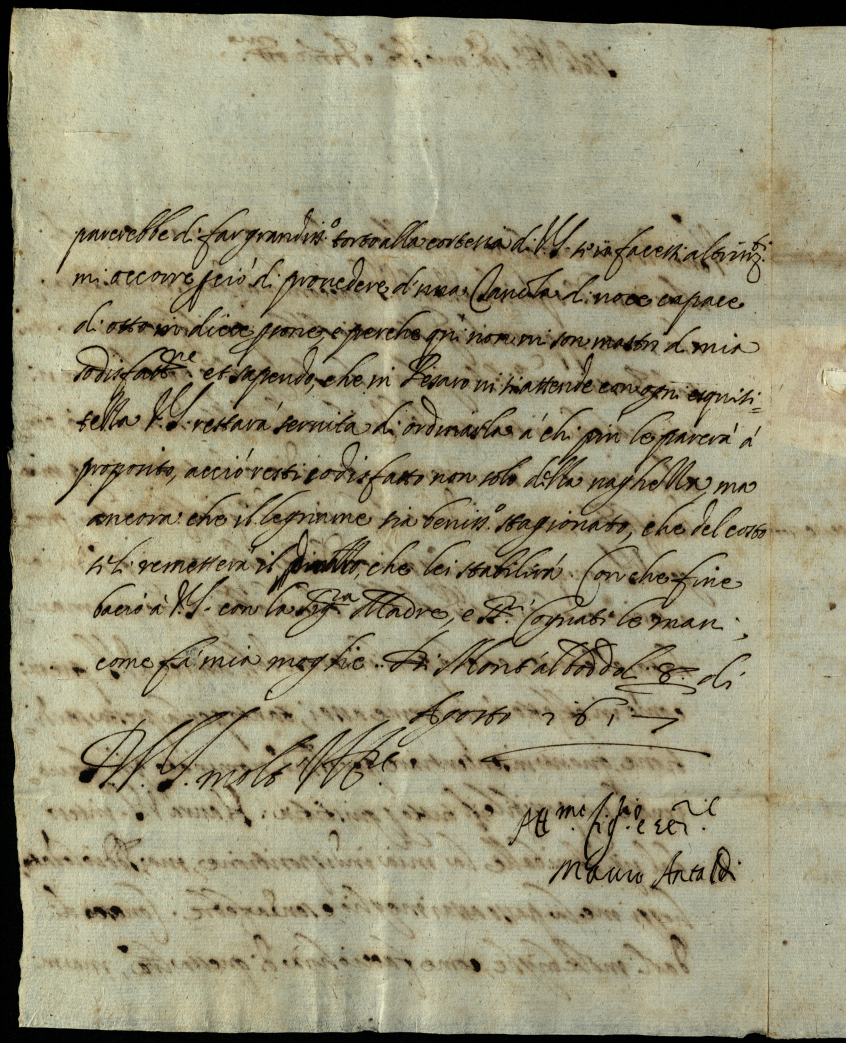 parerebbe di far grandiss.o torto alla cortesia di V.S. s'io facessi altrim.ti
mi occorre p ciò di provedere d'una di noce capace
di otto in diece psone, e perche qui non vi son mastri di mia
sodisfatt.ne et sapendo, che in Pesaro vi si attende con ogni esquisi=
tezza V.S. restarà servita di ordinarla à chi più le parerà à
proposito, acciò resti sodisfatto non solo della vaghezza, ma
ancora che il legniame sia beniss.o stagionato, che del costo
si li remetterà il che lei stabilirà. Con che fine
bacio à V.S. con la Sig.ra Madre, e SS.ri Cognati le mani,
come fà mia moglie. Di Mont'alboddo li 8. di
Agosto 161
D. V.S. molt' Ill.re
Aff.mo fig.lo e ser.re
Mauro Antaldi